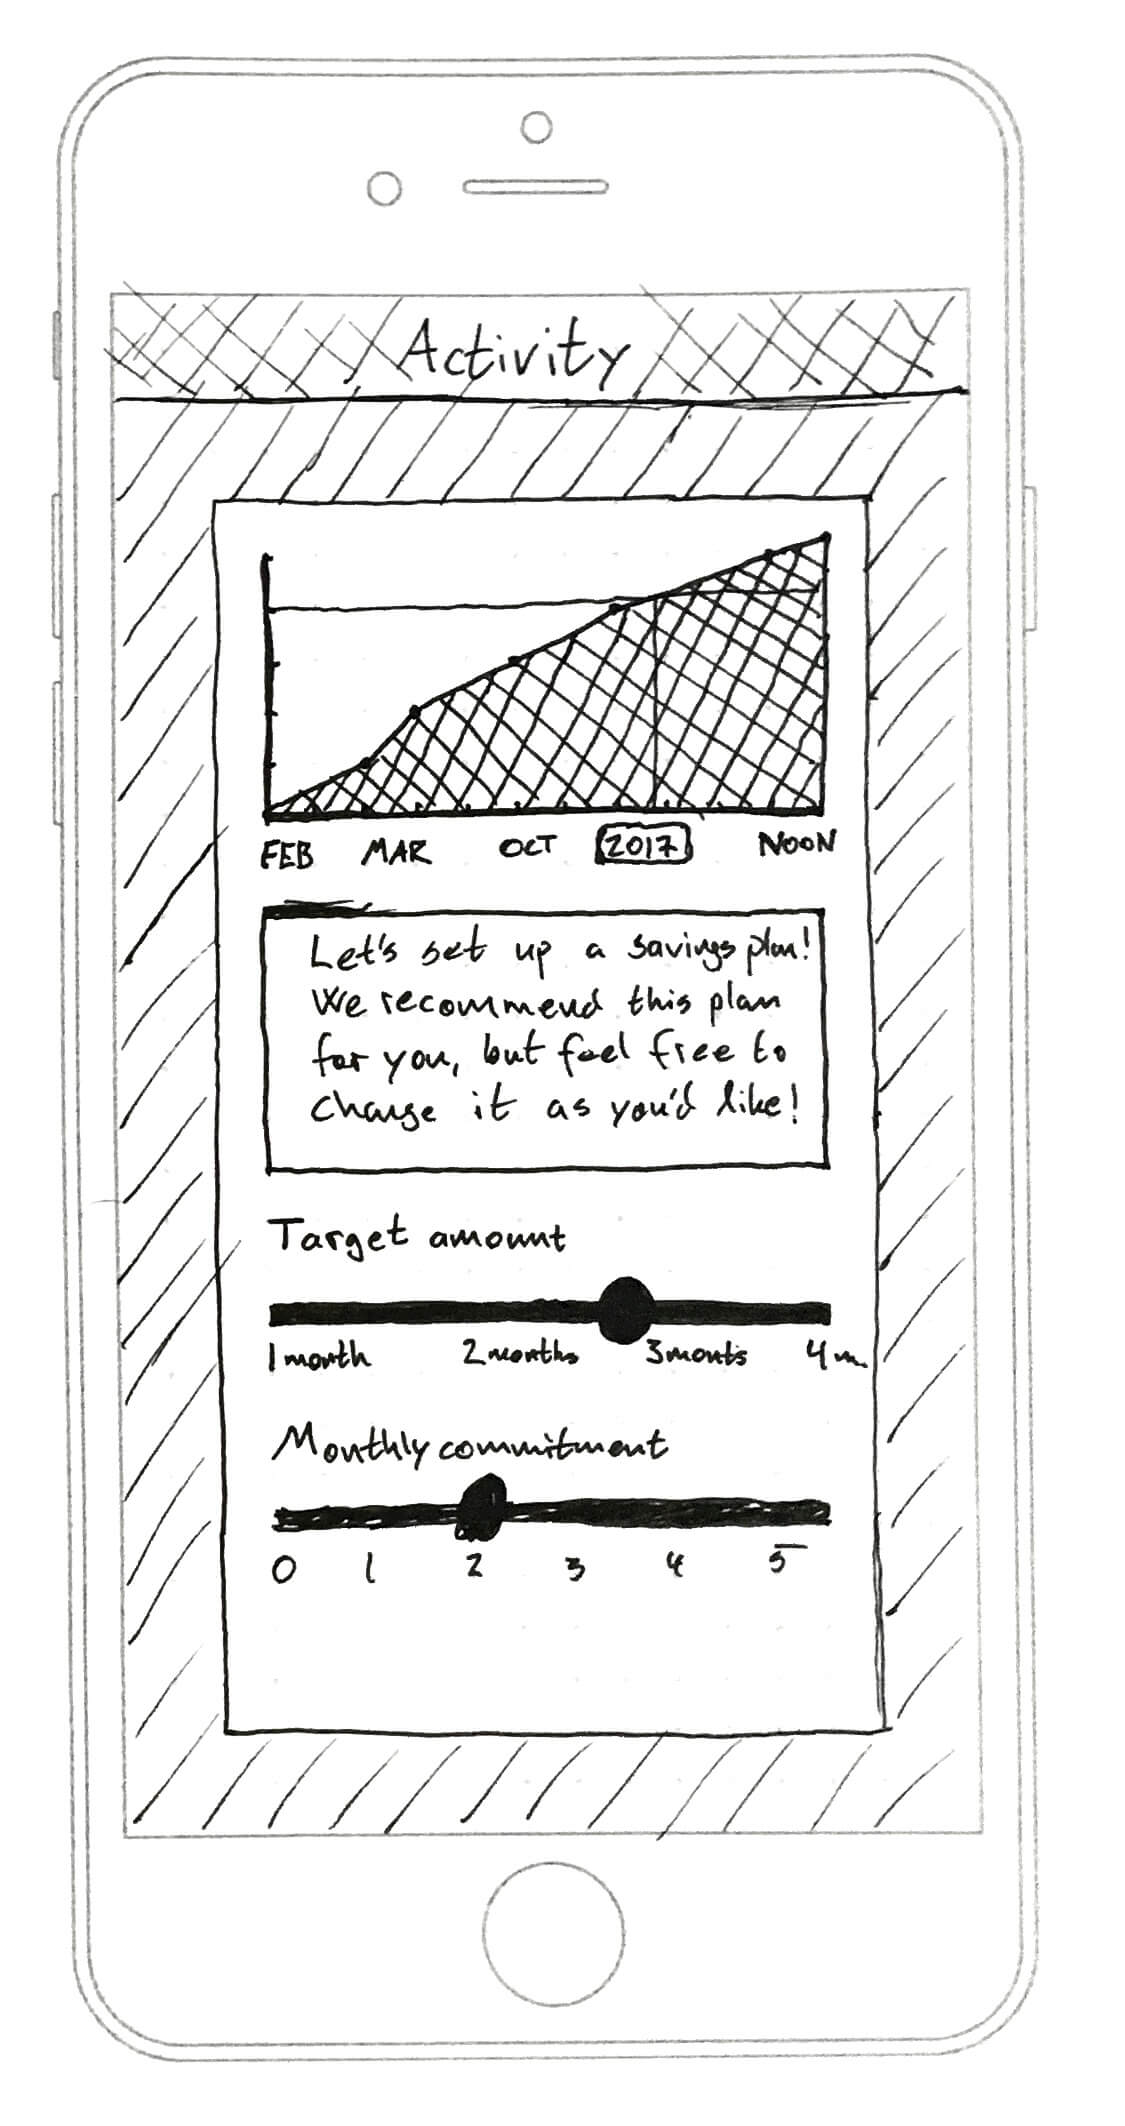 Activity
FEB MAR OCT 2017 NOON
Let's set up a savings plan!
We recommend this plan
for you, but feel free to
change it as you'd like!
Target amount
1 month 2 months 3 monts 4 m
Monthly commitment
0 1 2 3 4 5